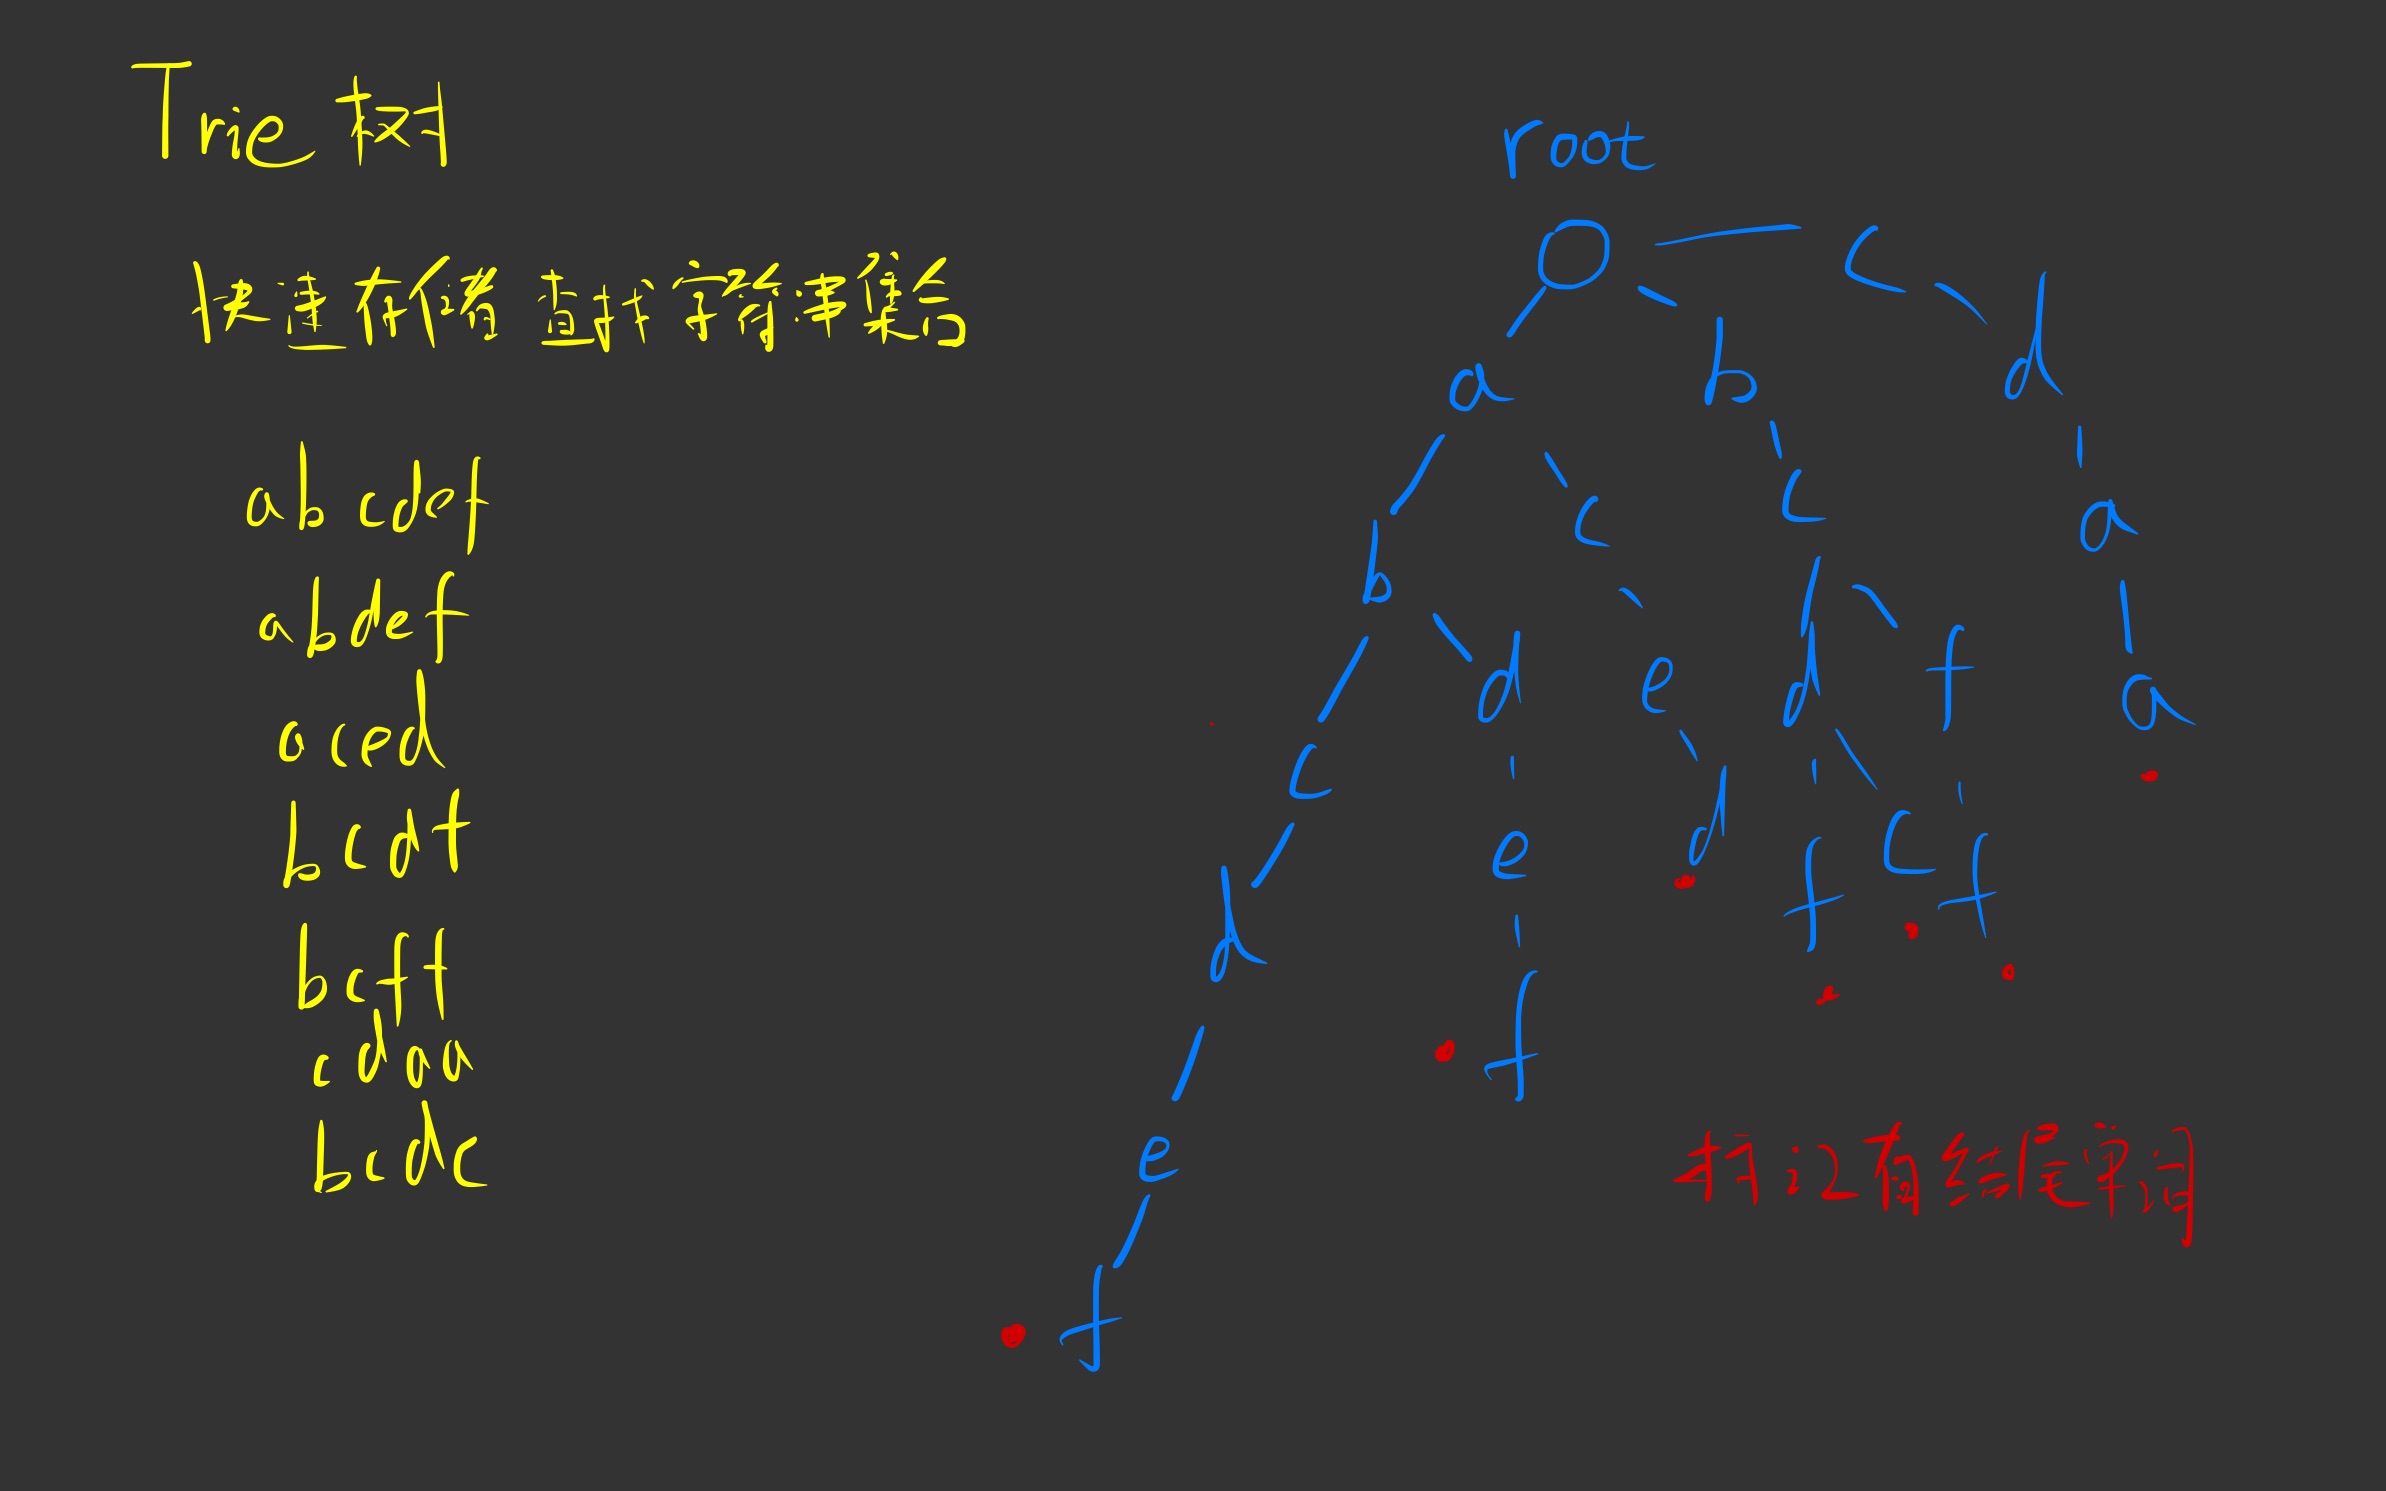 Trie 树
快速存储查找字符串集合
abcdef
abdef
aced
bcdf
bcff
cdaa
bcdc
root
O c
a b d
b c c a
c d e d f a
d e d f c f
e f
f
标记有结尾单词